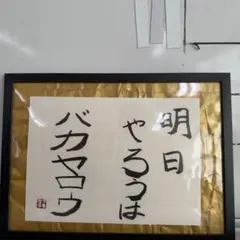 明日
やろうは
バカヤロウ